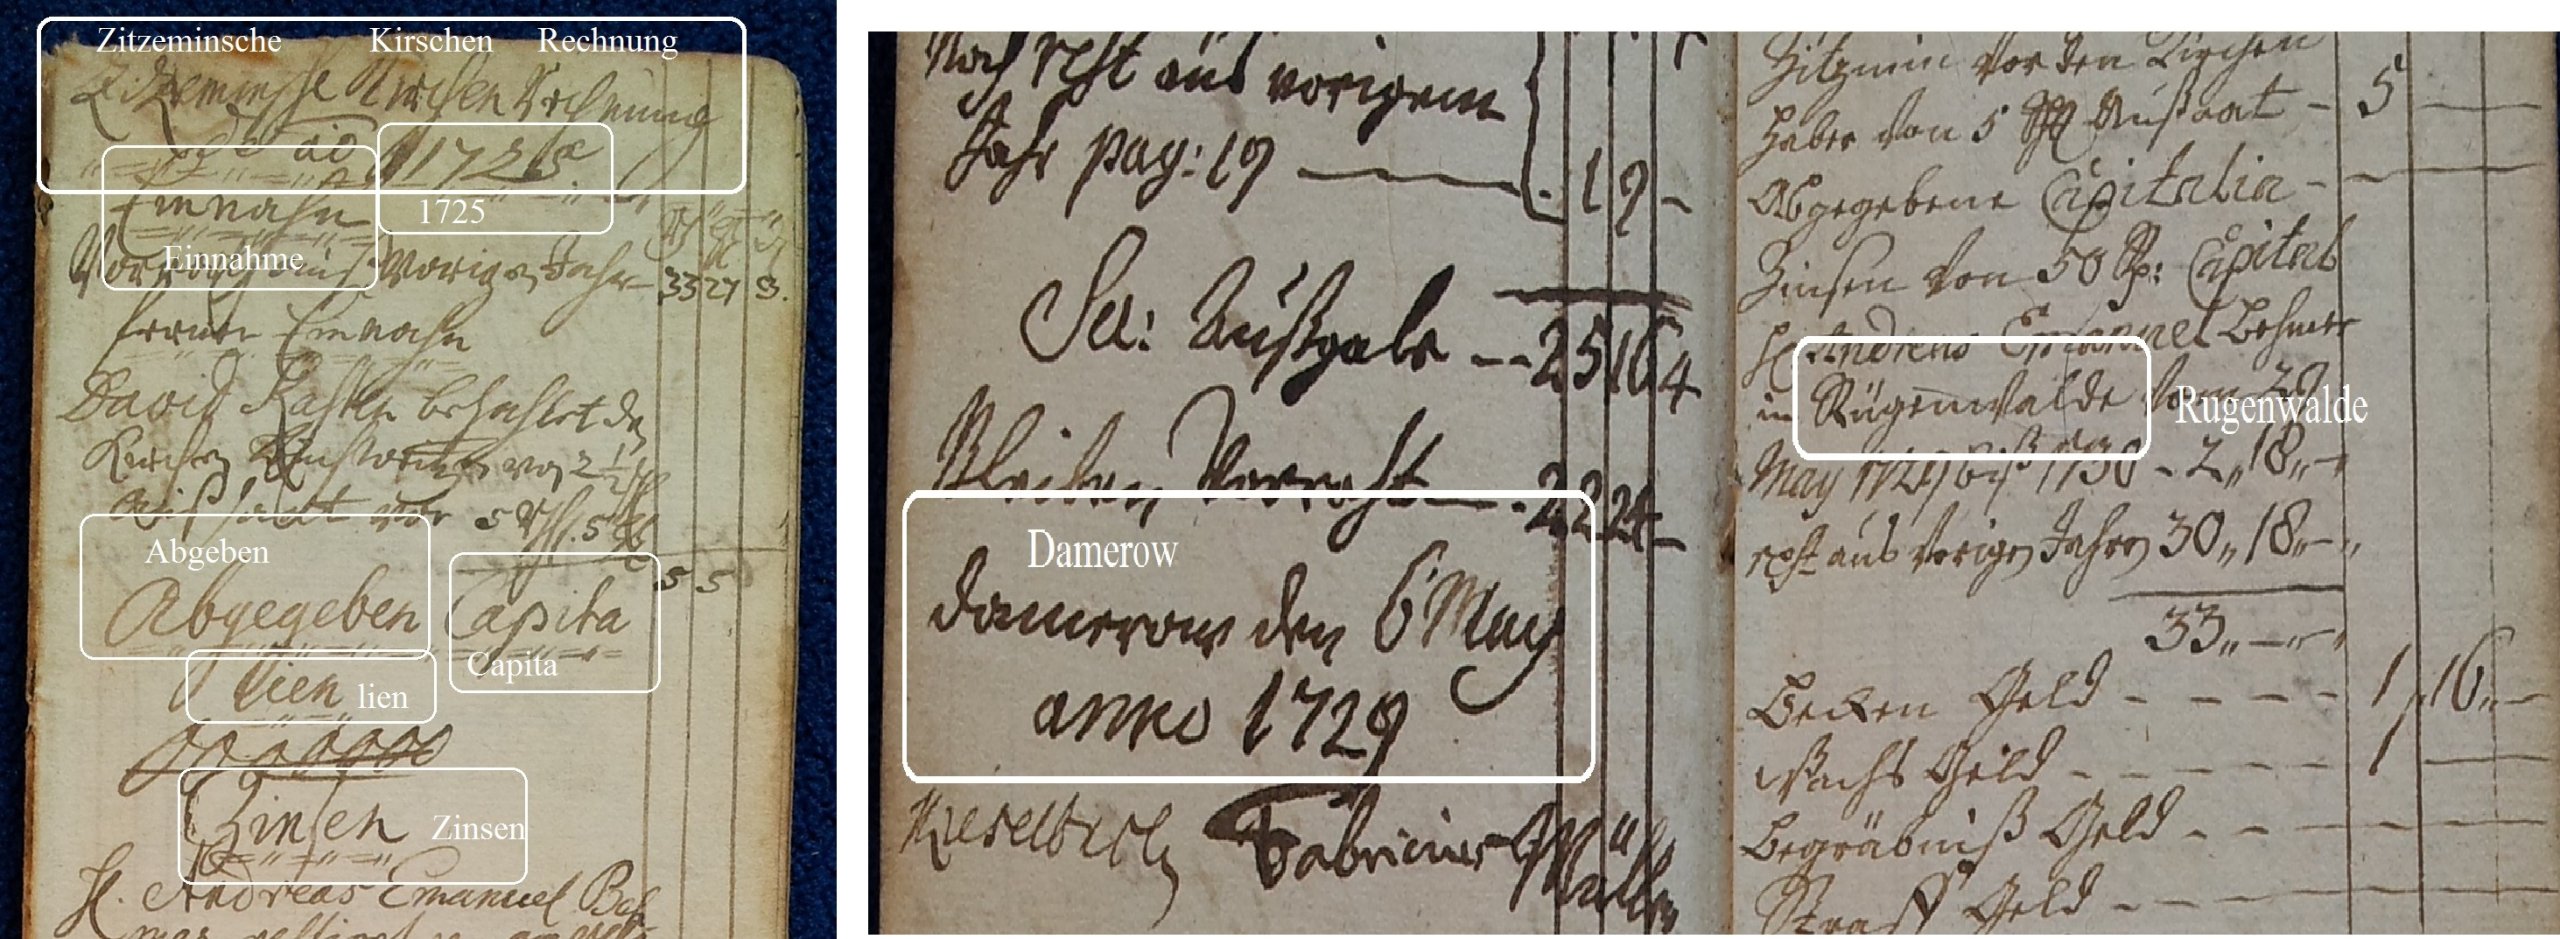 Zitzeminsche Kirschen Rechnung
Zitzeminsche Kirchen Rechnung
de ao 1725
1725
Einnahm
Einnahme
Vorraht aus Vorigen Jahr 33 27 3.
ferner Einnahm
David behahlet
von 2 1/2
Außsaat vor 5
5 5
Abgeben
Abgegeben Capita
Capita
lien lien
Zinsen Zinsen
H. Andreas Emanuel
Noch rest aus vorigem
Jahr pag: 19 — 19 -
Sa: Außgabe -- 25 16 4
Bleiben Vorraht — 22 24 -
Damerow
damerow den 6 May
anno 1729
Fabricius Müller
Zitzmin vor den Kirchen
Haber von 5 Außaat - 5 —
Abgegebene Capitalia -
Zinsen von 50 Rp: Capital
H. Andreas Emanuel Bohmer
in Rügenwalde Vom 29
Rugenwalde
May 1729 biß 1730 - 2,, 18,,-
rest aus Vorigen Jahren 30,, 18,,-
33,, — -
Becken Geld - - - - 1,, 16,, -
Wachs Geld - - - - - 1 —
Begräbniß Geld - - —
Straff Geld - - - —